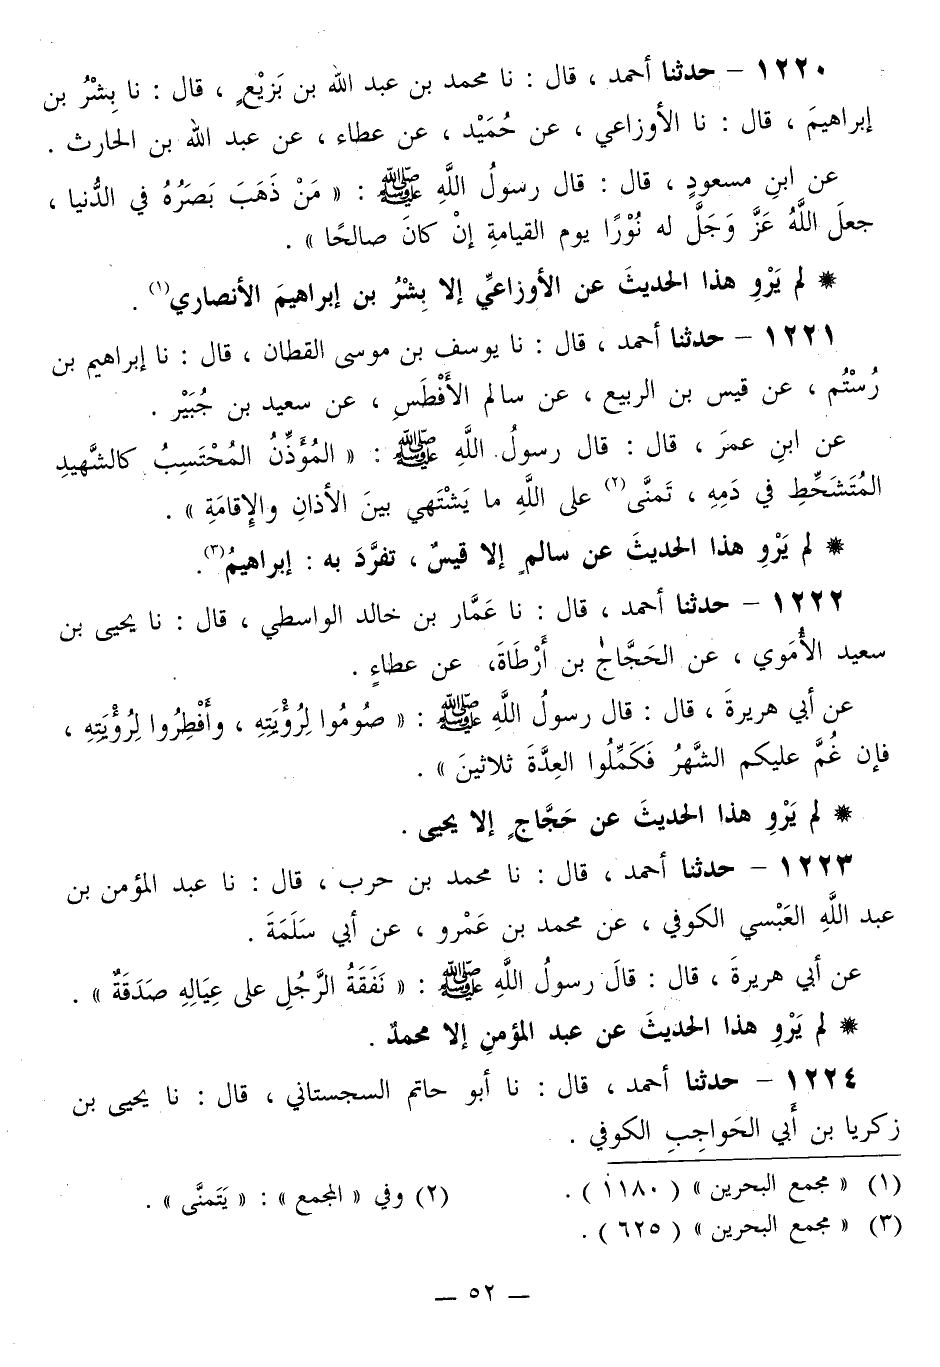 ١٢٢٠ – حدثنا أحمد ، قال : نا محمد بن عبد الله بن بَزِيْعٍ ، قال : نا بِشْرُ بن
إبراهيمَ ، قال : نا الأوزاعي ، عن حُمَيْد ، عن عطاء ، عن عبد الله بن الحارث .
عن ابنِ مسعودٍ ، قال : قال رسولُ اللَّهِ ﷺ : « مَنْ ذَهَبَ بَصَرُهُ في الدُّنيا ،
جعلَ اللَّهُ عَزَّ وَجَلَّ له نُوْرًا يوم القيامةِ إنْ كانَ صالحًا » .
* لم يَرْوِ هذا الحديثَ عن الأوزاعيِّ إلا بِشْرُ بن إبراهيمَ الأنصاري(١) .
١٢٢١ – حدثنا أحمد ، قال : نا يوسف بن موسى القطان ، قال : نا إبراهيم بن
رُسْتُم ، عن قيس بن الربيع ، عن سالم الأَفْطَسِ ، عن سعيد بن جُبَيْر .
عن ابنِ عمرَ ، قال : قال رسولُ اللَّهِ ﷺ : « المُؤَذِّنُ المُحْتَسِبُ كالشَّهيدِ
المُتَشَحِّطِ في دَمِهِ ، تَمنَّى(٢) على اللَّهِ ما يَشْتَهي بينَ الأذانِ والإقامَةِ » .
* لم يَرْوِ هذا الحديثَ عن سالمٍ إلا قيسٌ ، تفرَّدَ به : إبراهيمُ(٣).
١٢٢٢ – حدثنا أحمد ، قال : نا عَمَّار بن خالد الواسطي ، قال : نا يحيى بن
سعيد الأُمَوي ، عن الحَجَّاجُ بن أَرْطَاةَ، عن عطاءٍ .
عن أبي هريرةَ ، قال : قال رسولُ اللَّهِ ﷺ : « صُومُوا لِرُؤْيَتِهِ ، وأَفْطِرُوا لِرُؤْيَتِهِ ،
فإن غُمَّ عليكم الشَّهرُ فَكَمِّلُوا العِدَّةَ ثلاثينَ » .
* لم يَرْوِ هذا الحديثَ عن حَجَّاجٍ إلا يحيى .
١٢٢٣ – حدثنا أحمد ، قال : نا محمد بن حرب ، قال : نا عبد المؤمن بن
عبد اللَّهِ العَبْسي الكوفي ، عن محمد بن عَمْرو ، عن أبي سَلَمَةَ .
عن أبي هريرةَ ، قال : قالَ رسولُ اللَّهِ ﷺ : « نَفَقَةُ الرَّجُلِ على عِيَالِهِ صَدَقَةٌ » .
* لم يَرْوِ هذا الحديثَ عن عبد المؤمنِ إلا محمدٌ .
١٢٢٤ – حدثنا أحمد ، قال : نا أبو حاتم السجستاني ، قال : نا يحيى بن
زكريا بن أَبي الحَواجِبِ الكوفي .
(١) « مجمع البحرين » ( ١١٨٠ ) . (٢) وفي « المجمع » : « يَتَمنَّى » .
(٣) « مجمع البحرين » ( ٦٢٥ ) .
— ٥٢ —